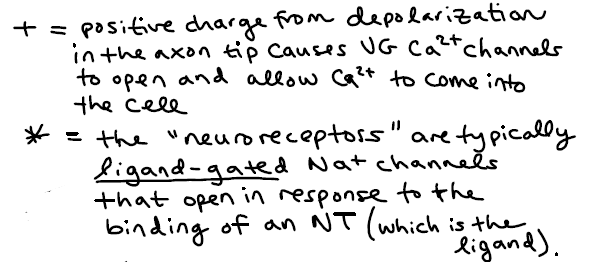 + = positive charge from depolarization
in the axon tip causes VG Ca²⁺ channels
to open and allow Ca²⁺ to come into
the cell
* = the "neuroreceptors" are typically
ligand-gated Na+ channels
that open in response to the
binding of an NT (which is the
ligand).